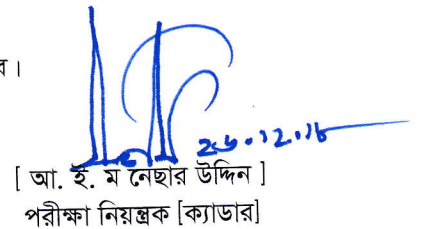 ব।
[ আ. ই. ম নেছার উদ্দিন ]
পরীক্ষা নিয়ন্ত্রক [ক্যাডার]